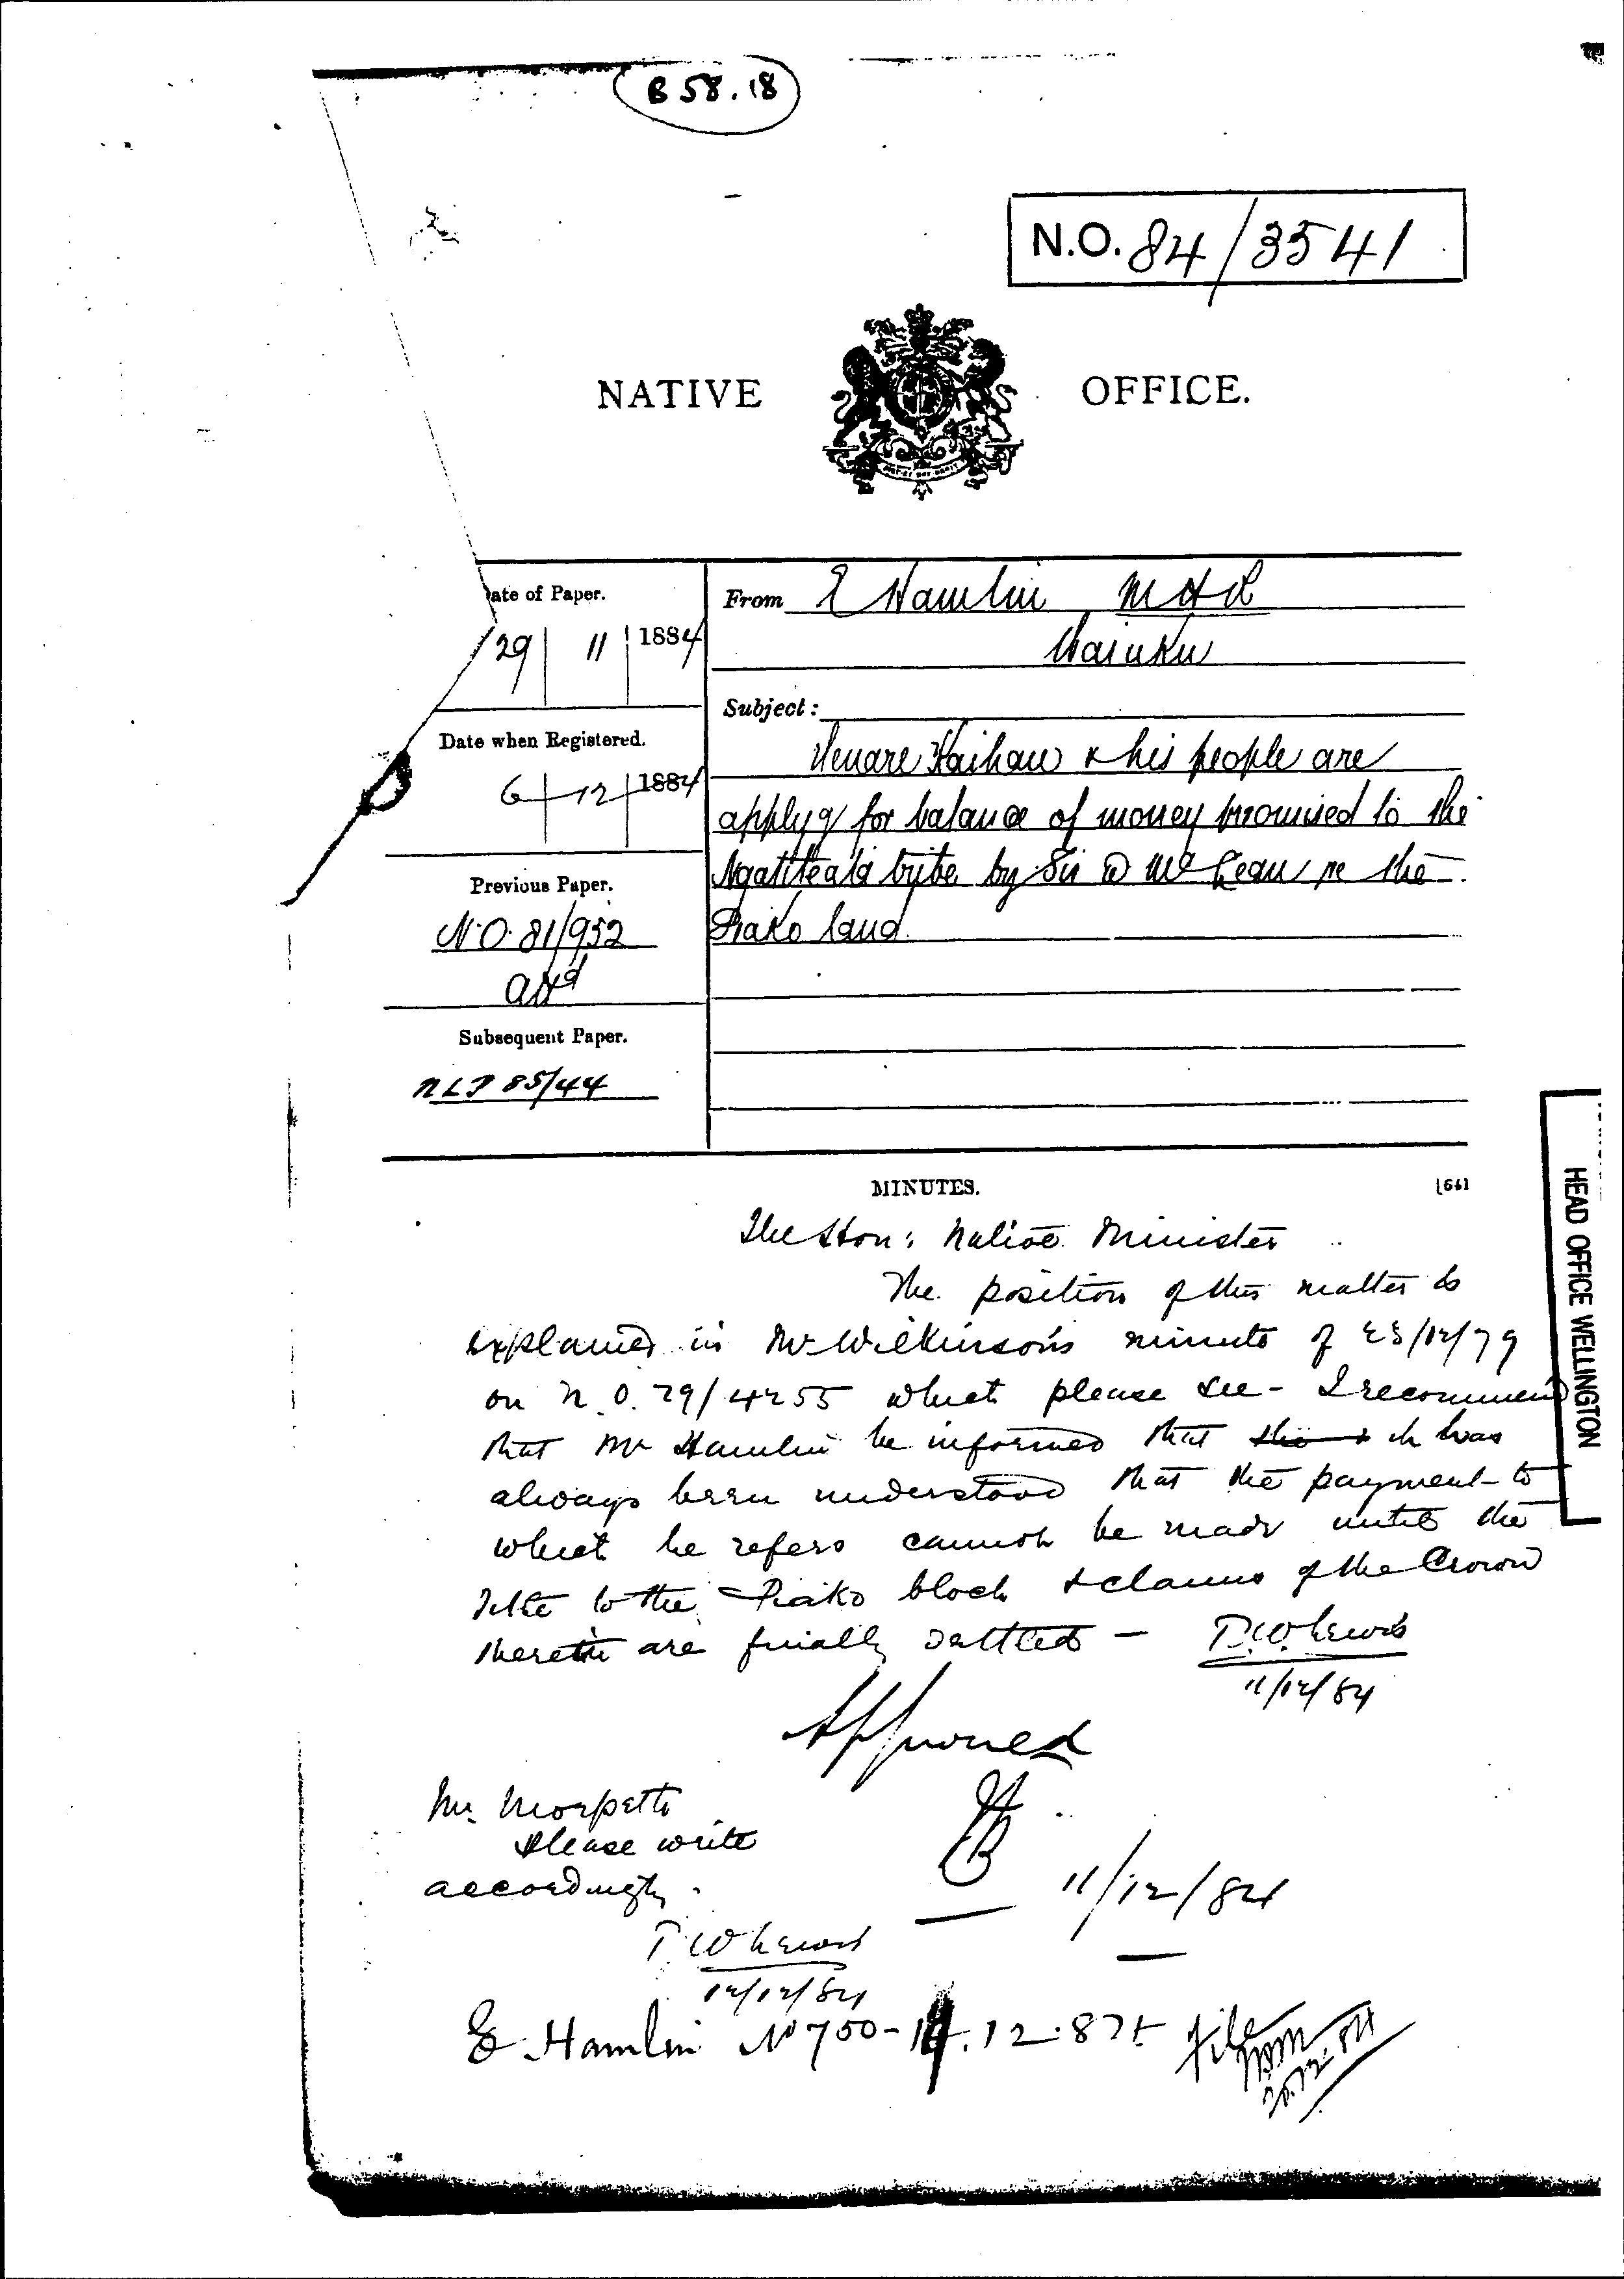 B 58.18
N.O. 84/3541
NATIVE OFFICE.
ate of Paper.
29 11 1884
From E Hamlin MHR
Waiuku
Subject:
Date when Registered.
6 12 1884
Henare Kaihau & his people are
applyg for balance of money promised to the
Ngatiteata tribe by Sir D McLean re the
Piako land.
Previous Paper.
N.O. 81/952
attd
Subsequent Paper.
NLP 85/44
MINUTES.
[661
The Hon: Native Minister
The position of this matter is
explained in Mr Wilkinson's minute of 23/12/79
on N.O. 79/4255 which please see - I recommend
that Mr Hamlin be informed that it has
always been understood that the payment to
which he refers cannot be made until the
title to the Piako block & claims of the Crown
thereto are finally settled -
T.W. Lewis
11/12/84
Approved
JB
11/12/84
Mr. Morpeth
Please write
accordingly.
T W Lewis
12/12/84
E. Hamlin No 750- .12.84
file
20.12.84
HEAD OFFICE WELLINGTON